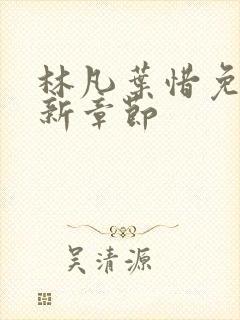 林凡葉惜免
新章節
吴清源